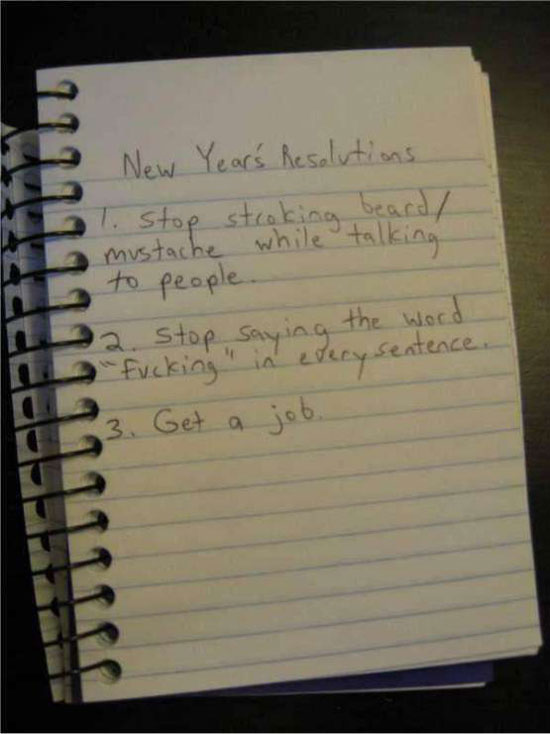 New Year's Resolutions
1. Stop stroking beard/
mustache while talking
to people.
2. Stop saying the word
"fucking" in every sentence.
3. Get a job.